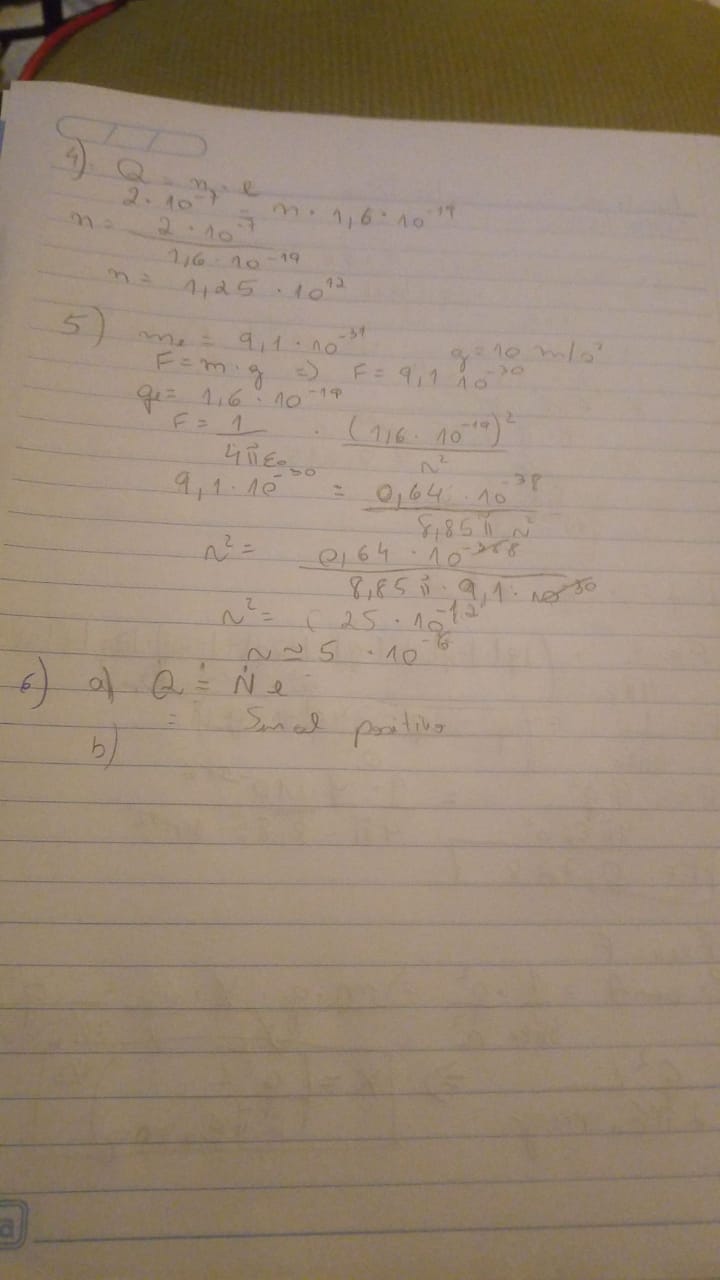 4) Q = n . e
2 . 10^-7 = n . 1,6 . 10^-19
n = 2 . 10^-7 / 1,6 . 10^-19
n = 1,25 . 10^12
5) me = 9,1 . 10^-31 g = 10 m/s²
F = m . g => F = 9,1 10^-30
qe = 1,6 . 10^-19
F = 1 / 4πε0 . (1,6 . 10^-19)² / r²
9,1 . 10^-30 = 0,64 . 10^-38 / 8,85 π r²
r² = 0,64 . 10 / 8,85 π . 9,1 .
r² = 25 . 10^-12
r ≈ 5 . 10^-6
6) a) Q = N e
= Sinal positivo
b)